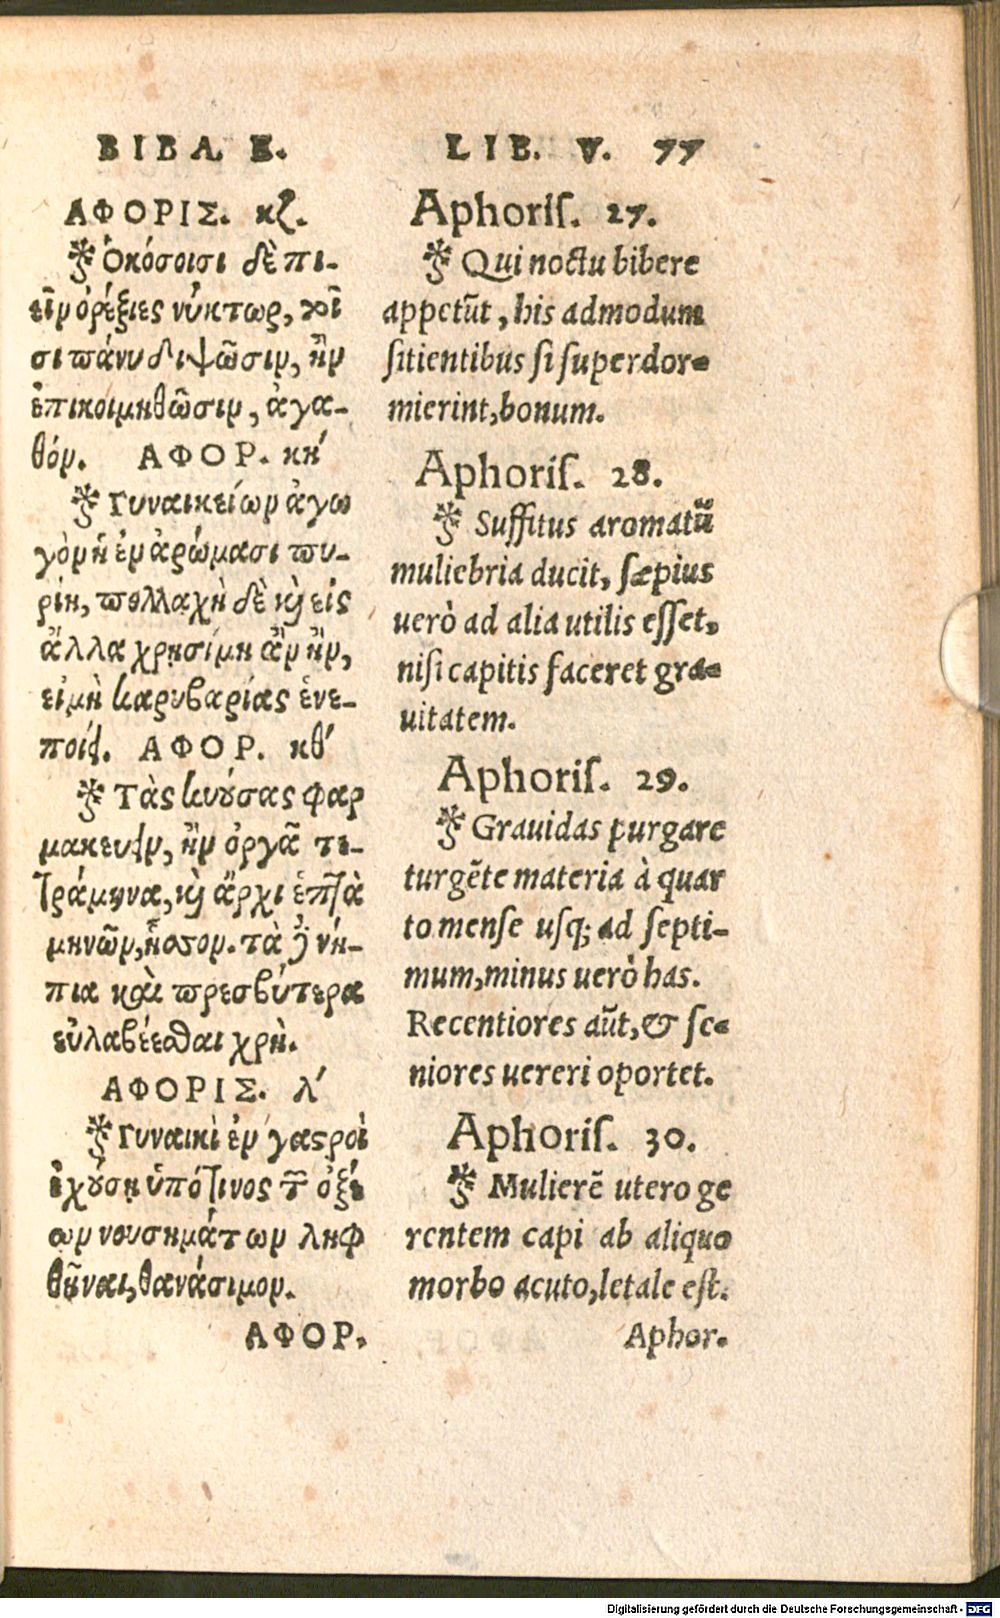 ΒΙΒΛ. Ε.
ΑΦΟΡΙΣ. κζ.
Ὁκόσοισι δὲ πι-
εῖν ὀρέξιες νύκτωρ, τοῖ
σι πάνυ διψῶσιν, ἢν
ἐπικοιμηθῶσιν, ἀγα-
θόν. ΑΦΟΡ. κή
Γυναικείων ἀγω
γὸν ἡ ἐν ἀρώμασι πυ-
ρίη, πολλαχὴ δὲ καὶ εἰς
ἄλλα χρησίμη ἂν ἦν,
εἰ μὴ καρυβαρίας ἐνε-
ποίει. ΑΦΟΡ. κθ´
Τὰς κυούσας φαρ
μακεύειν, ἢν ὀργᾷ τε-
τράμηνα, καὶ ἄχρι ἑπτὰ
μηνῶν, ἧσσον. τὰ δὲ νή-
πια καὶ πρεσβύτερα
εὐλαβέεσθαι χρή.
ΑΦΟΡΙΣ. λ´
Γυναικὶ ἐν γαστρὶ
ἐχούσῃ ὑπό τινος τῶν ὀξέ
ων νουσημάτων ληφ
θῆναι, θανάσιμον.
ΑΦΟΡ.
LIB. V. 77
Aphoris. 27.
Qui noctu bibere
appetūt, his admodum
sitientibus si superdor-
mierint, bonum.
Aphoris. 28.
Suffitus aromatū
muliebria ducit, sæpius
uerò ad alia utilis esset,
nisi capitis faceret gra-
uitatem.
Aphoris. 29.
Grauidas purgare
turgēte materia à quar
to mense usq; ad septi-
mum, minus uerò has.
Recentiores aūt, & se-
niores uereri oportet.
Aphoris. 30.
Mulierē utero ge
rentem capi ab aliquo
morbo acuto, letale est.
Aphor.
Digitalisierung gefördert durch die Deutsche Forschungsgemeinschaft - DFG